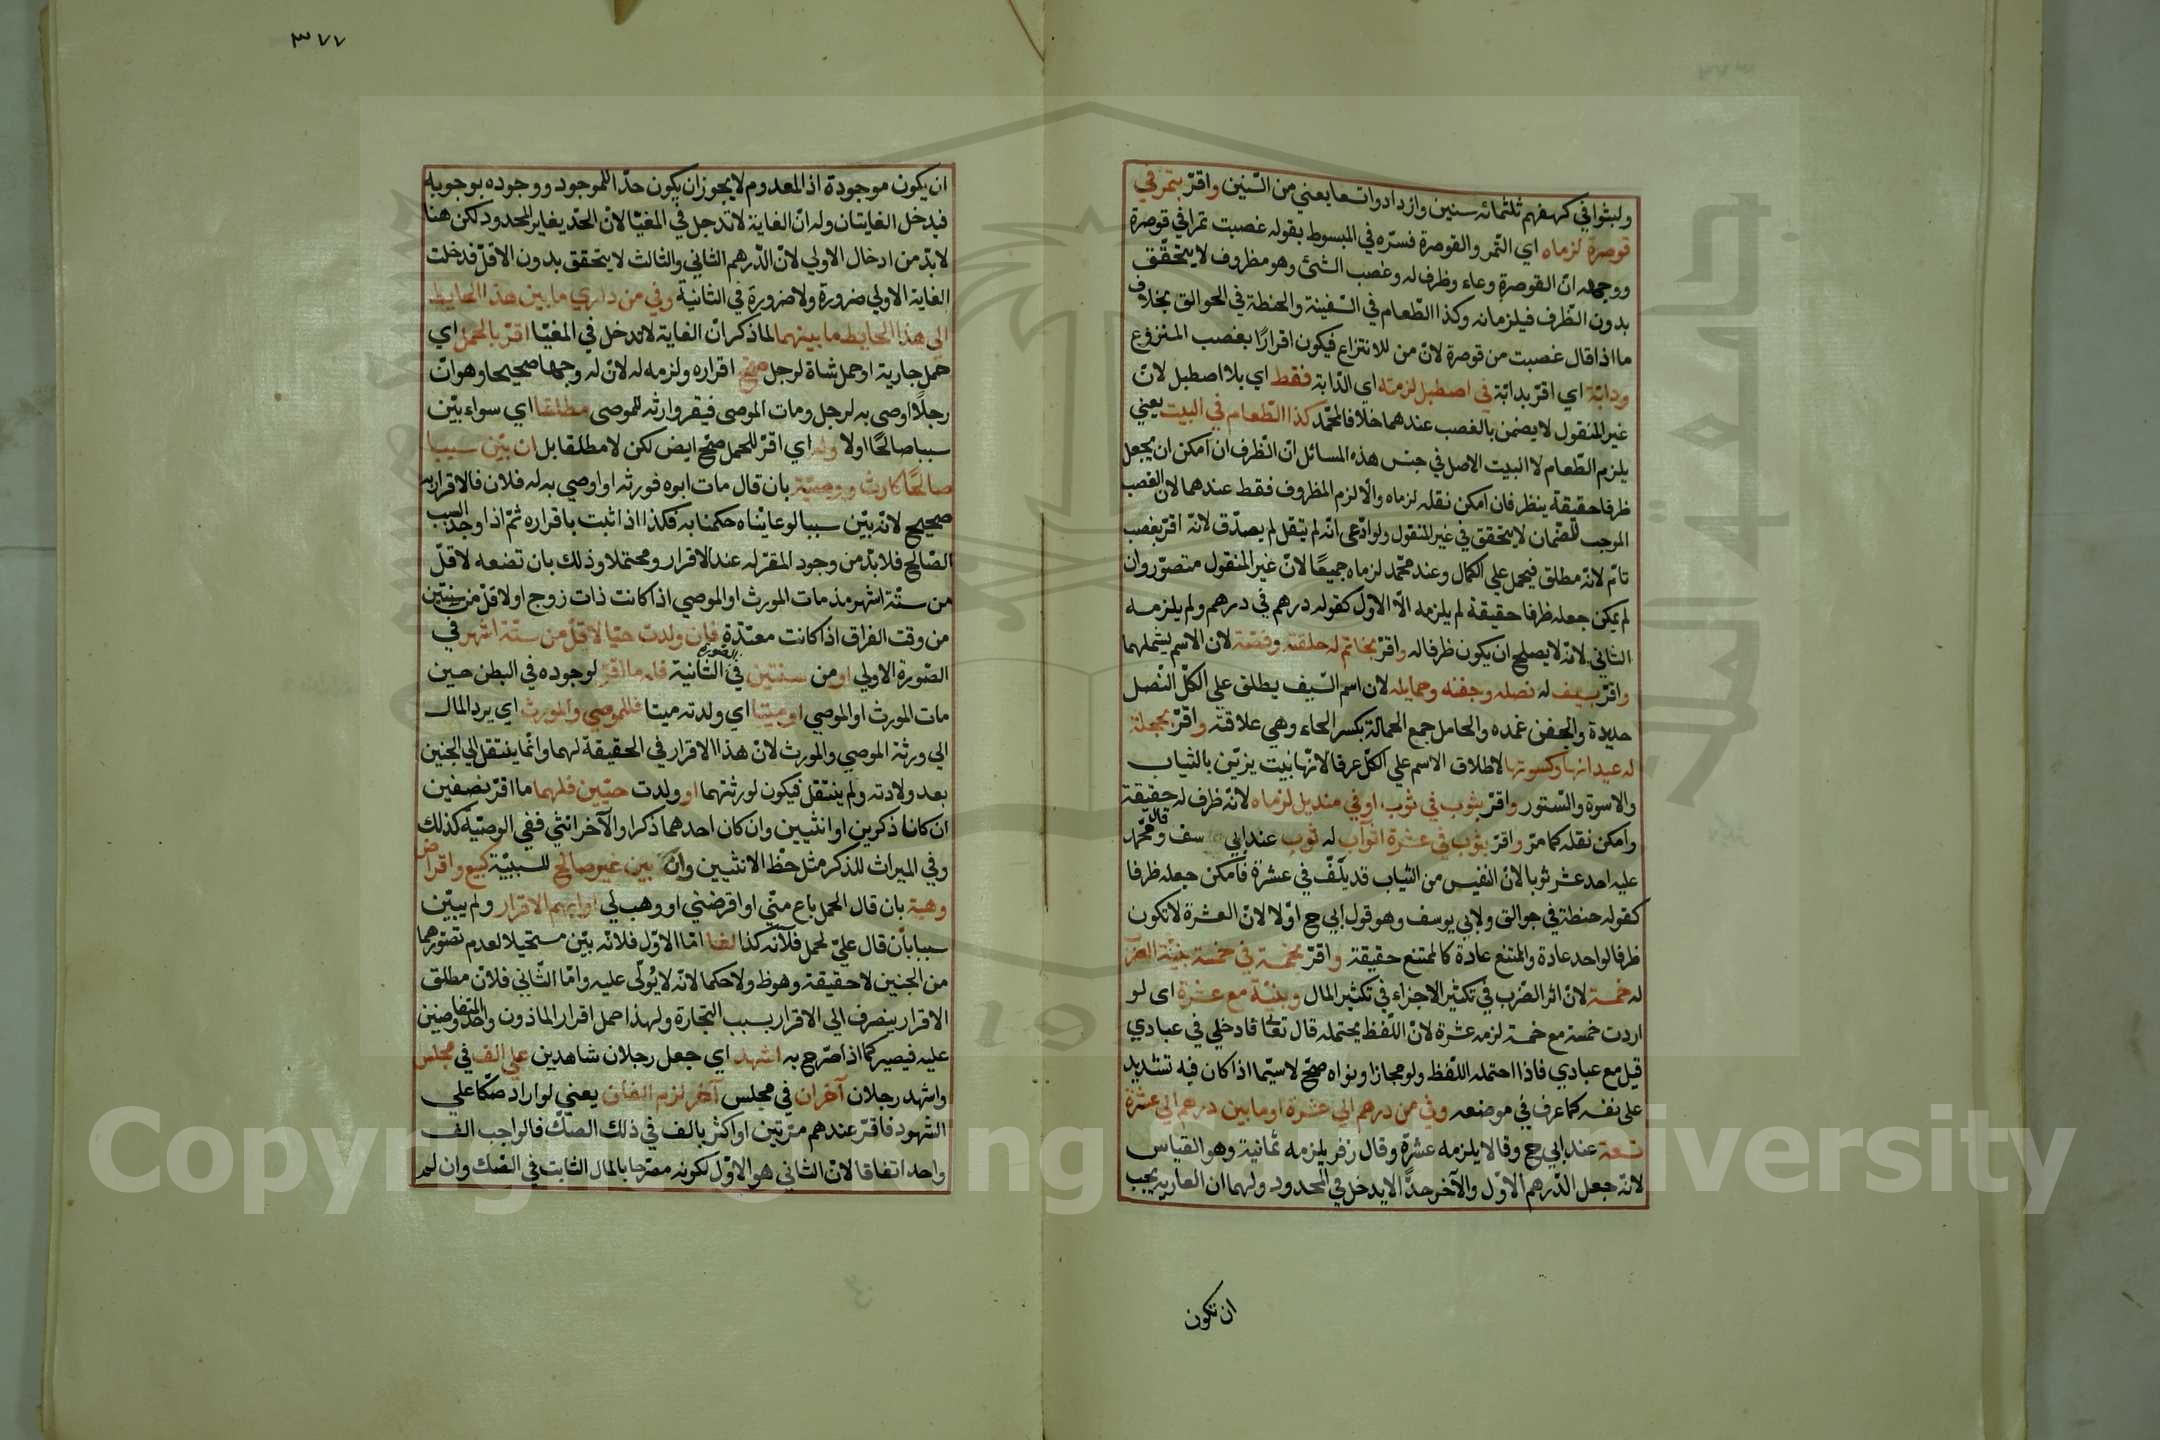 ولبثوا في كهفهم ثلثمائه سنين وازدادوا تسعا يعني من السّنين واقرّ بتمر في
قوصرة لزماه اي التّمر والقوصرة فسّره في المبسوط بقوله غصبت تمرا في قوصرة
ووجهه انّ القوصرة وعاء وظرف له وغصب الشئ وهو مظروف لا يتحقّق
بدون الظّرف فيلزمانه وكذا الطّعام في السّفينة والحنطة في الجوالق بخلاف
ما اذا قال غصبت من قوصرة لانّ من للانتزاع فيكون اقرارًا بغصب المنزوع
ودابّة اي اقرّ بدابّة في اصطبل لزمته اي الدّابة فقط اي بلا اصطبل لانّ
غير المنقول لا يضمن بالغصب عندهما خلافا لمحمّد كذا الطّعام في البيت يعني
يلزم الطّعام لا البيت الاصل في جنس هذه المسائل انّ الظّرف ان امكن ان يجعل
ظرفا حقيقة ينظر فان امكن نقله لزماه والّا لزم المظروف فقط عندهما لانّ الغصب
الموجب للضّمان لا يتحقق في غير المنقول ولو ادّعى انّه لم ينقل لم يصدّق لانّه اقرّ بغصب
تامّ لانّه مطلق فيحمل علي الكمال وعند محمّد لزماه جميعًا لانّ غير المنقول متصوّر وان
لم يمكن جعله ظرفا حقيقة لم يلزمه الّا الاول كقوله درهم في درهم ولم يلزمه
الثاني لانّه لا يصلح ان يكون ظرفا له واقرّ بخاتم له حلقته وفصّه لان الاسم يشملهما
واقرّ بسيف له نصله وجفنه وحمايله لان اسم السّيف يطلق علي الكلّ النّصل
حديدة والجفن غمده والحامل جمع الحمالة بكسر الحاء وهي علاقته واقرّ بحجلة
له عيدانها وكسوتها لاطلاق الاسم علي الكلّ عرفا لانّها بيت يزيّن بالثياب
والاسوة والسّتور واقرّ بثوب في ثوب او في منديل لزماه لانّه ظرف له حقيقة
وامكن نقله كما مرّ واقرّ بثوب في عشرة اثواب له ثوب عند ابي سف وقال محمّد
عليه احد عشر ثوبا لانّ النفيس من الثياب قد يلّفّ في عشرة فامكن جعله ظرفا
كقوله حنطة في جوالق ولابي يوسف وهو قول ابي ح اوّلا لانّ العشرة لا تكون
ظرفا لواحد عادة والممتنع عادة كالممتنع حقيقة واقرّ بخمسة في خمسة بنيّة الضّرب
له خمسة لانّ اثر الضّرب في تكثير الاجزاء في تكثير المال وبنيّة مع عشرة اى لو
اردت خمسة مع خمسة لزمه عشرة لانّ اللّفظ يحتمله قال تعالى فادخلي في عبادي
قيل مع عبادي فاذا احتمله اللّفظ ولو مجازا ونواه صحّ لا سيّما اذا كان فيه تشديد
على نفسه كما عرف في موضعه وفي من درهم الي عشرة او ما بين درهم الي عشرة
تسعة عند ابي ح وقالا يلزمه عشرة وقال زفر يلزمه ثمانية وهو القياس
لانّه جعل الدّرهم الاوّل والآخر حدًّا لا يدخل في المحدود ولهما ان الغاية يجب
ان تكون
٣٧٧
ان يكون موجودة اذ المعدوم لا يجوز ان يكون حدّا للموجود ووجوده بوجوبه
فيدخل الغايتان وله انّ الغاية لا تدخل في المغيّا لانّ الحدّ يغاير المحدود لكن هنا
لا بدّ من ادخال الاولي لانّ الدّرهم الثاني والثالث لا يتحقق بدون الاوّل فدخلت
الغاية الاولي ضرورة ولا ضرورة في الثانية وفي من داري ما بين هذا الحايط
الي هذا الحايط ما بينهما لما ذكر انّ الغاية لا تدخل في المغيّا اقرّ بالحمل اي
حمل جارية او حمل شاة لرجل صحّ اقراره ولزمه له لانّ له وجها صحيحا وهو انّ
رجلًا اوصي به لرجل ومات الموصي فيقر وارثه للموصى مطلقا اي سواء بيّن
سببا صالحًا اولا وله اي اقرّ للحمل صحّ ايض لكن لا مطلقا بل ان بيّن سببا
صالحًا كارث ووصيّة بان قال مات ابوه فورثه او اوصي به له فلان فالاقرار به
صحيح لانّه بيّن سببا لو عايناه حكمنا به فكذا اذا ثبت باقراره ثمّ اذا وجد السبب
الصّالح فلا بدّ من وجود المقرّ له عند الاقرار ومحتملا وذلك بان تضعه لاقلّ
من ستّة اشهر مذ مات المورث او الموصي اذا كانت ذات زوج او لاقلّ من سنتين
من وقت الفراق اذا كانت معتدّة فان ولدت حيّا لاقلّ من ستّة اشهر في
الصّورة الاولي او من سنتين في الصورة الثانية فله ما اقرّ لوجوده في البطن حين
مات المورث او الموصي او ميّتا اي ولدته ميتا فللموصي والمورث اي يرد المال
الي ورثة الموصي والمورث لانّ هذا الاقرار في الحقيقة لهما وانّما ينتقل الي الجنين
بعد ولادته ولم ينتقل فيكون لورثتهما او ولدت حيّين فلهما ما اقرّ نصفين
ان كانا ذكرين او انثيين وان كان احدهما ذكرا والآخر انثي ففي الوصيّة كذلك
وفي الميراث للذكر مثل حظّ الانثيين وانّ بين غير صالح للسببيّة كبيع واقراض
وهبة بان قال الحمل باع منّي او اقرضني او وهب لي او ابهم الاقرار ولم يبيّن
سببا بان قال عليّ لحمل فلانة كذا لغا امّا الاوّل فلانّه بيّن مستحيلا لعدم تصوّرهما
من الجنين لا حقيقة وهو ظ ولا حكما لانّه لا يُولّى عليه وامّا الثّاني فلانّ مطلق
الاقرار ينصرف الي الاقرار بسبب التجارة ولهذا حمل اقرار الماذون واحد المتفاوضين
عليه فيصير كما اذا صرّح به اشهد اي جعل رجلان شاهدين علي الف في مجلس
واشهد رجلان آخران في مجلس آخر لزم الفان يعني لو اراد صكّا علي
الشهود فاقرّ عندهم مرّتين او اكثر بالف في ذلك الصكّ فالواجب الف
واحد اتفاقا لانّ الثاني هو الاوّل لكونه معرّفا بالمال الثابت في الصّك وان لم